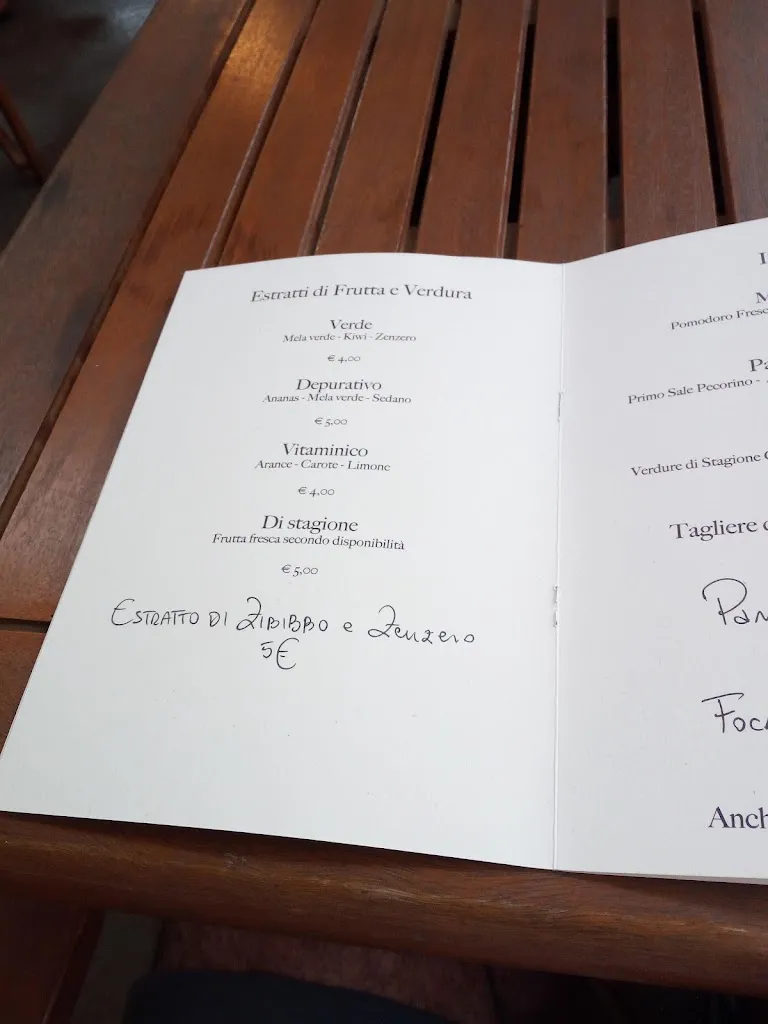 Estratti di Frutta e Verdura
Verde
Mela verde - Kiwi - Zenzero
€ 4,00
Depurativo
Ananas - Mela verde - Sedano
€ 5,00
Vitaminico
Arance - Carote - Limone
€ 4,00
Di stagione
Frutta fresca secondo disponibilità
€ 5,00
ESTRATTO DI ZIBIBBO e Zenzero
5€
Pomodoro
Primo Sale Pecorino -
Verdure di Stagione
Tagliere